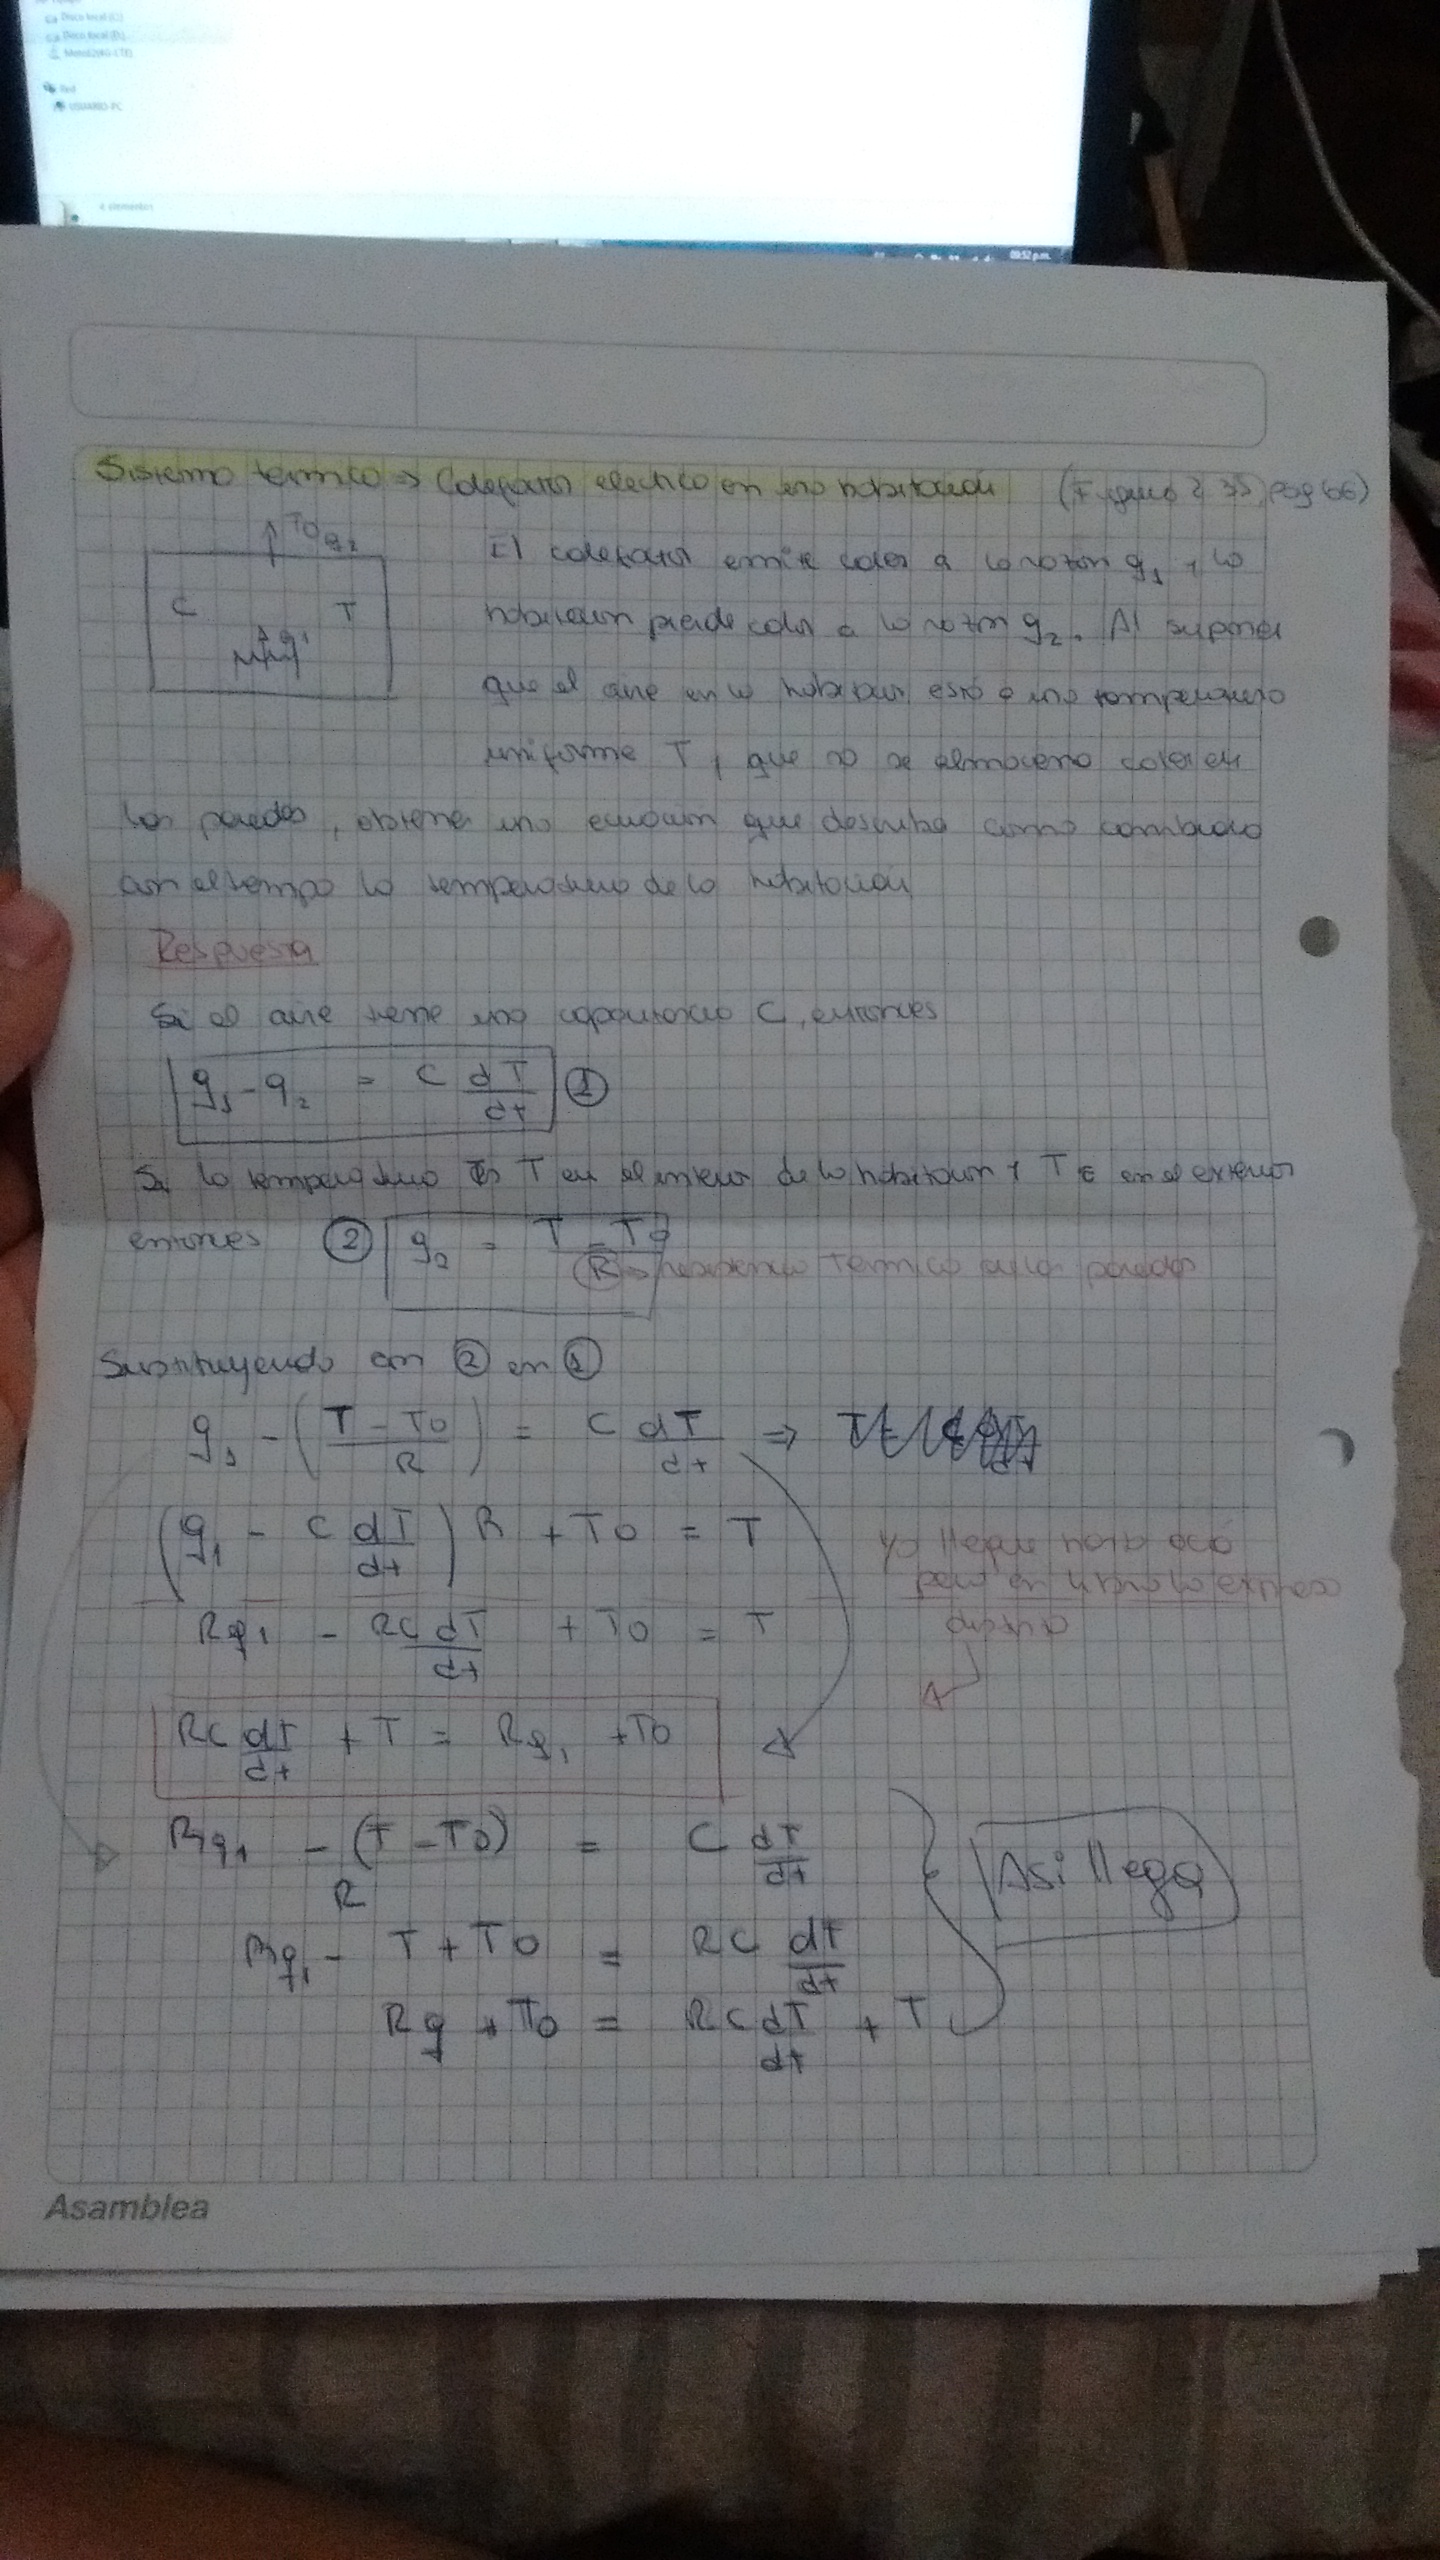 Disco local (C:)
Disco local (D:)
Red
USUARIO-PC
4 elementos
09:52 p.m.
Sistema termico => Calefactor electrico en una habitación (Figura 2.35, pag 66)
To q2
C T
q1
El calefactor emite calor a la razon q1 y la
habitacion pierde calor a la razon q2. Al suponer
que el aire en la habitacion está a una temperatura
uniforme T, que no se almacena calor en
las paredes, obtener una ecuacion que describa como cambiara
con el tempo la temperatura de la habitación
Respuesta
Si el aire tiene una capacitancia C, entonces
q1 - q2 = C dT/dt ①
Si la temperatura es T en el interior de la habitacion y TE en el exterior
entonces ② q2 = T - To / R => resistencia termica de las paredes
Sustituyendo con ② en ①
q1 - (T - To / R) = C dT/dt =>
(q1 - C dT/dt) R + To = T
Yo llegue hasta acá
pero en el libro lo expresa
distinto
Rq1 - RC dT/dt + To = T
RC dT/dt + T = Rq1 + To
Rq1 - (T - To) / R = C dT/dt
Así llega
Rq1 - T + To = RC dT/dt
Rq + To = RC dT/dt + T
Asamblea